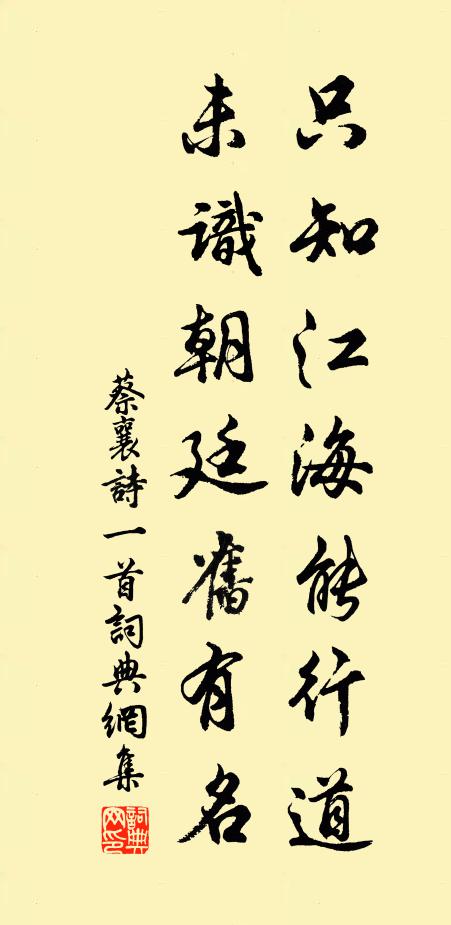 只知江海能行道
未識朝廷舊有名
蔡襄詩一首詞典網集
詞典網印